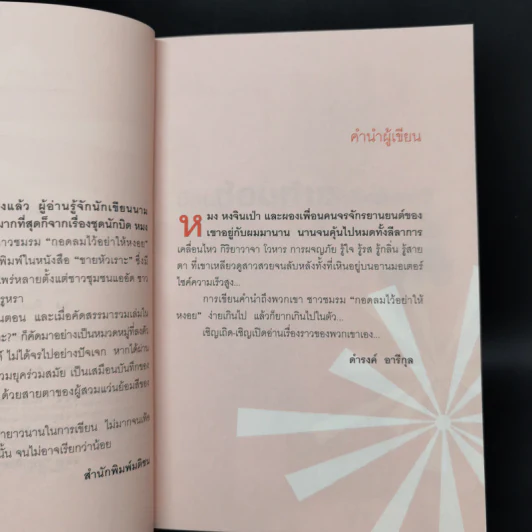 งแล้ว ผู้อ่านรู้จักนักเขียนนาม
มากที่สุดก็จากเรื่องชุดนักบิด หมง
าวชมรม "กอดลมไว้อย่าให้หงอย"
พิมพ์ในหนังสือ "ขายหัวเราะ" ซึ่งมี
แพร่หลายตั้งแต่ชาวชุมชนแออัด ชาว
รูหรา
นตอน และเมื่อคัดสรรมารวมเล่มใน
ะ?" ก็คัดมาอย่างเป็นหมวดหมู่ที่ลงตัว
ไม่ใช่จรไปอย่างปัจเจก หากได้ผ่าน
วมยุคร่วมสมัย เป็นเสมือนบันทึกของ
ด้วยสายตาของผู้สวมแว่นย้อมสีของ
ายาวนานในการเขียน ไม่มากจนเฟ้อ
นั้น จนไม่อาจเรียกว่าน้อย
สำนักพิมพ์มติชน
คำนำผู้เขียน
หมง หงจินเป่า และผองเพื่อนคนจรจักรยานยนต์ของ
เขาอยู่กับผมมานาน นานจนคุ้นไปหมดทั้งลีลาการ
เคลื่อนไหว กิริยาวาจา โวหาร การผจญภัย รู้ใจ รู้รส รู้กลิ่น รู้สาย
ตา ที่เขาเหลียวดูสาวสวยจนลับหลังทั้งที่เหินอยู่บนอานมอเตอร์
ไซค์ความเร็วสูง...
การเขียนคำนำถึงพวกเขา ชาวชมรม "กอดลมไว้อย่าให้
หงอย" ง่ายเกินไป แล้วก็ยากเกินไปในตัว...
เชิญเถิด-เชิญเปิดอ่านเรื่องราวของพวกเขาเอง...
ดำรงค์ อารีกุล